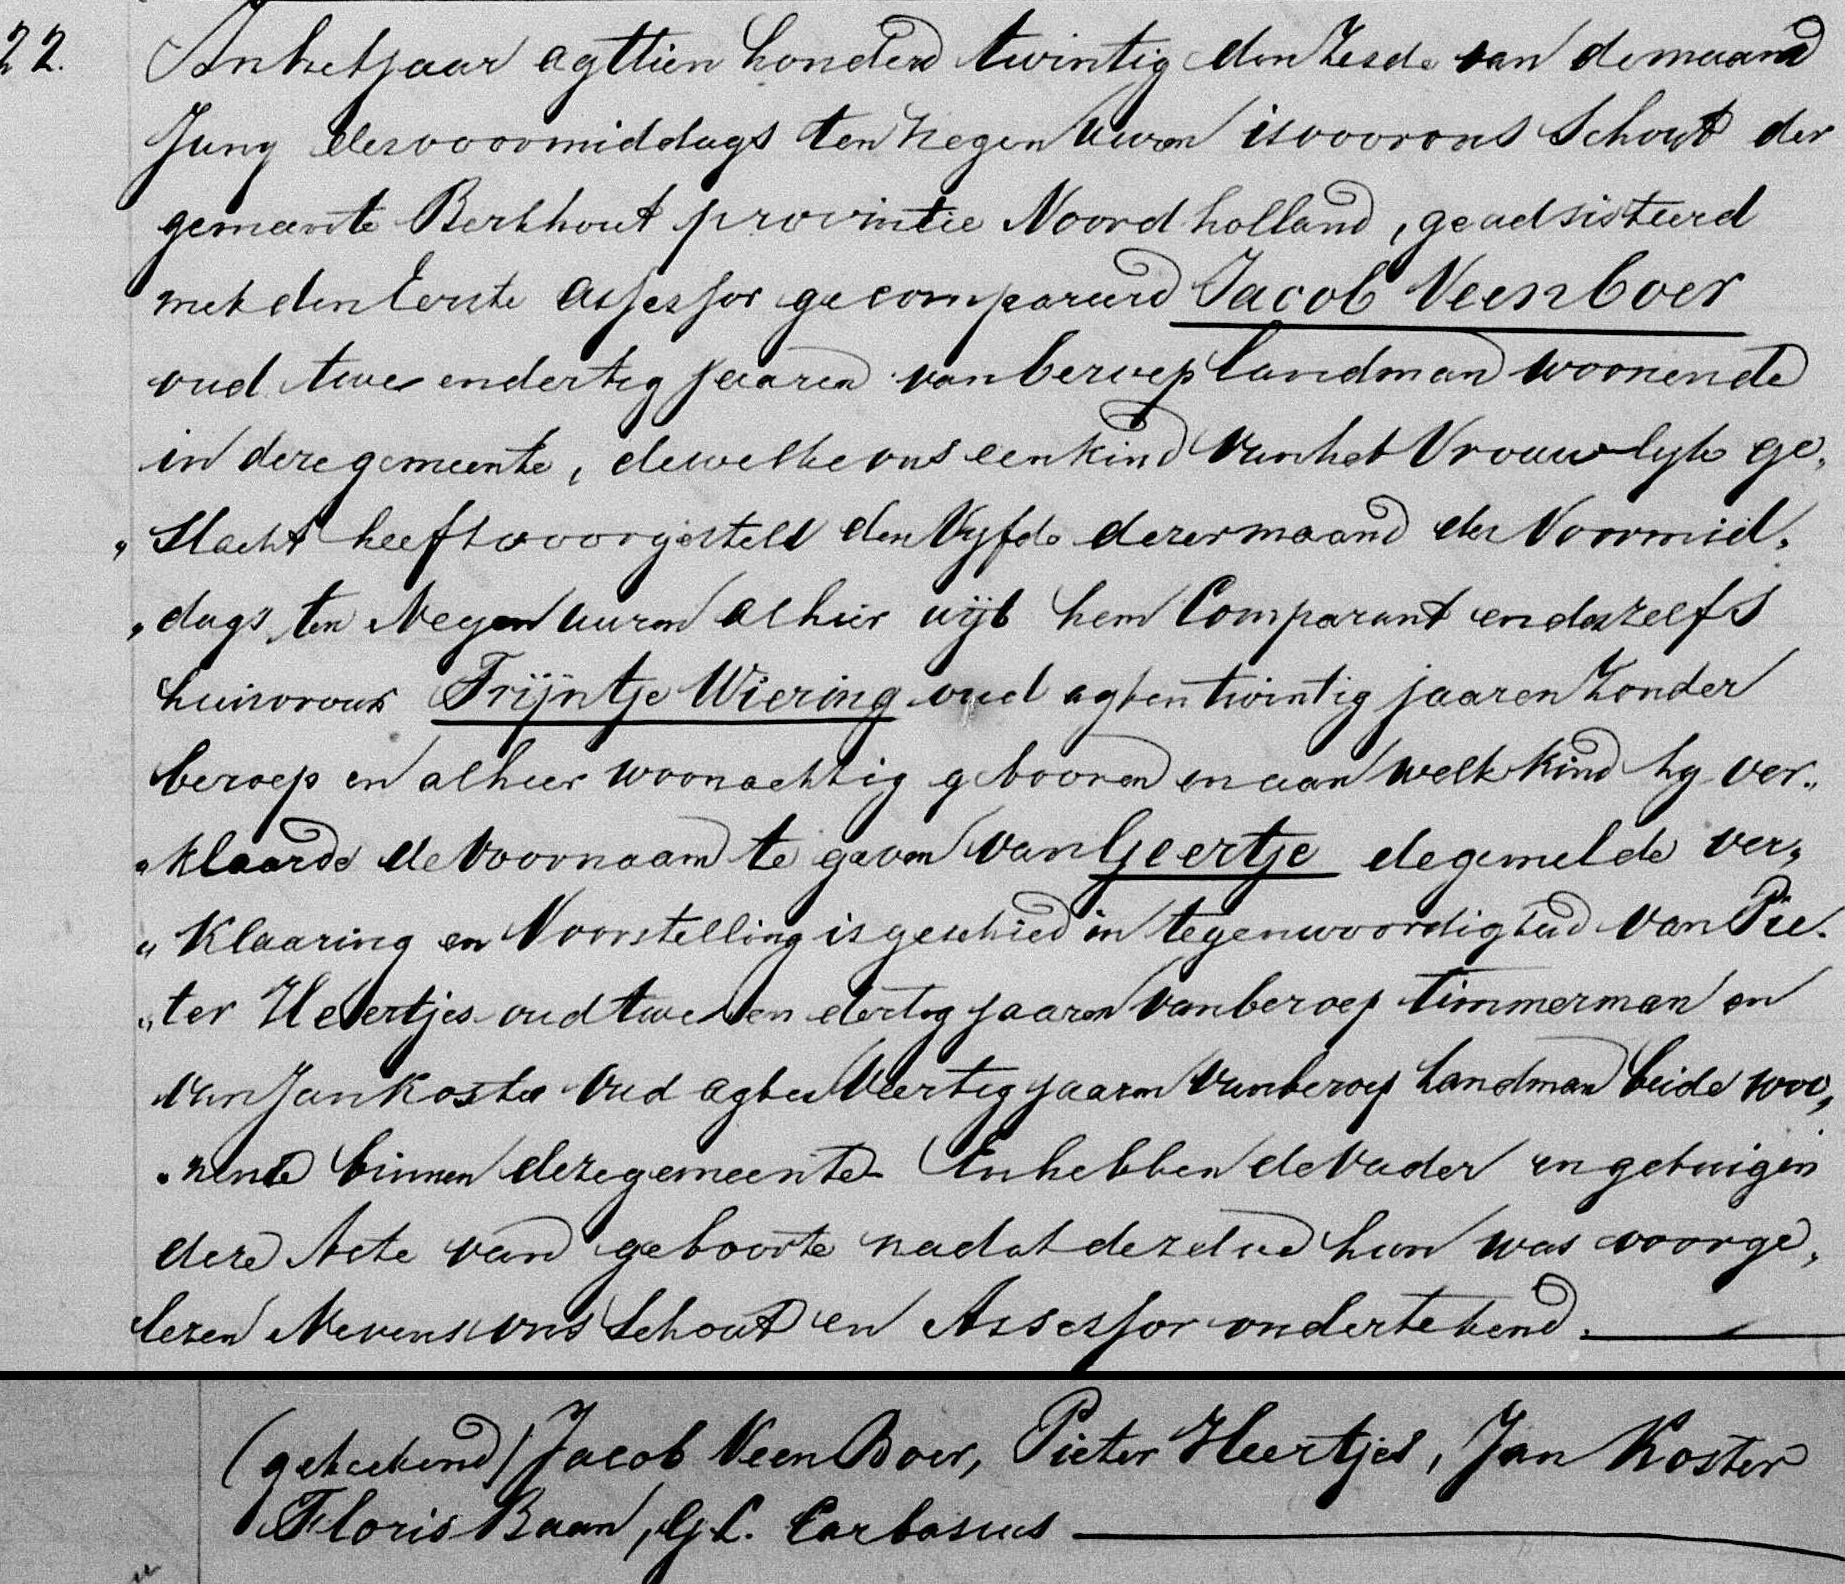 22. In het jaar agttien honderd twintig den Zesde van de maand
Juny des voormiddags ten negen uuren is voor ons Schout der
gemeente Berkhout provintie Noord holland, geadsisteerd
met den Eerste Assessor gecompareerd Jacob Veenboer
oud twee en dertig jaaren van beroep Landman woonende
in deze gemeente, dewelke ons een kind van het Vrouwlyk ge„
„slacht heeft voorgesteld den Vyfde dezer maand des Voormid„
„dags ten Negen uuren alhier uijt hem Comparant en deszelfs
huisvrouw Trijntje Wiering oud agt en twintig jaaren Zonder
beroep en alhier woonachtig gebooren en aan welk kind hy ver„
„klaarde de Voornaam te geven van Geertje de gemelde ver„
„klaaring en Voorstelling is geschied in tegenwoordigheid van Pie„
„ter Heertjes oud twee en dertig jaaren van beroep timmerman en
van Jan Koster oud agt en Veertig jaaren van beroep Landman beide woo„
„nende binnen deze gemeente En hebben de Vader en getuigen
deze Acte van geboorte nadat dezelve hun was voorge„
lezen Nevens ons Schout en Assessor ondertekend.
(getekend) Jacob Veen Boer, Pieter Heertjes, Jan Koster
Floris Baan, G L. Carbasius